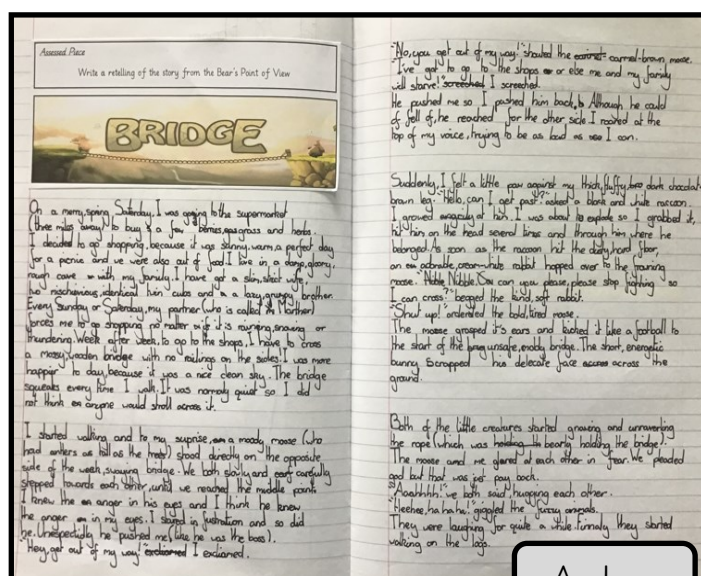 Assessed Piece
Write a retelling of the story from the Bear's Point of View
BRIDGE
On a merry, spring Saturday, I was going to the supermarket
(three miles away) to buy a few berries, grass and herbs.
I decided to go shopping, because it was sunny, warm, a perfect day
for a picnic and we were also out of food. I live in a damp, gloomy,
rough cave with my family. I have got a slim, strict wife,
two mischievous, identical twin cubs and a lazy, grumpy brother.
Every Sunday or Saturday, my partner (who is called Marther)
forces me to go shopping no matter if it is raineng, snowing or
thundering. Week after week, to go to the shops, I have to cross
a mossy, wooden bridge with no railings on the sides! I was more
happier to day, because it was a nice clean sky. The bridge
squeaks every time I walk. It was normaly quiet so I did
not think anyone would stroll across it.
I started walking and to my suprise, a moody moose (who
had anters as tall as the trees) stood directly on the opposite
side of the week, swaying bridge. We both slowly and carefully
stepped towards each other, until we reached the middle point.
I knew the anger in his eyes and I think he knew
the anger in my eyes. I stared in fustration and so did
he. Unexpecidly he pushed me (like he was the boss).
"Hey, get out of my way!" I exclamed.
"No, you get out of my way!" shouted the carmel-brown moose.
"I've got to go to the shops or else me and my family
will starve!" I screeched.
He pushed me so I pushed him back. Although he could
of fell of, he reached for the other side. I roared at the
top of my voice, trying to be as loud as I can.
Suddenly, I felt a little paw against my thick, fluffy, dark chocolate-
brown leg. "Hello, can I get past?" asked a black and white raccoon.
I growed angrily at him. I was about to explode so I grabbed it,
hit him on the head several times and through him where he
belonged. As soon as the raccoon hit the dusty, hard floor,
an adorable, cream-white rabbit hopped over to the
moose. can you please, please stop fighting so
I can cross?" begged the kind, soft rabbit.
"Shut up!" the bold, tired moose.
The moose grasped it's ears and kicked it like a football to
the start of the unsafe, moldy bridge. The short, energetic
bunny scrapped his delecate face across the
ground.
Both of the little creatures started gnawing and unravering
the rope (which was bearly holding the bridge).
The moose and me glared at each other in fear. We pleaded
god but that was just pay back.
"Aaahhhh!" we both said, hugging each other.
"Heehee, ha ha ha!" giggled the fuzzy animals.
They were laughing for quite a while. finnaly they started
walking on the logs.